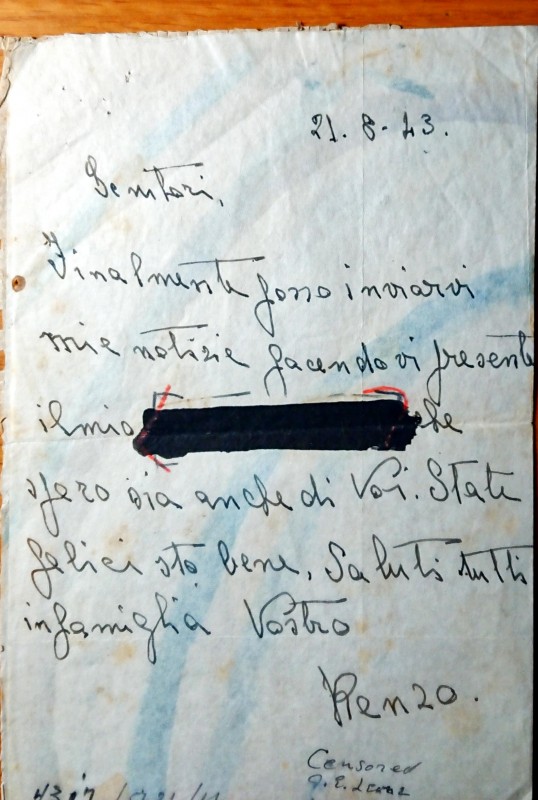 21. 8. 43.
Genitori,
Finalmente posso inviarvi
mie notizie facendovi presente
il mio che
spero sia anche di Voi. State
felici sto bene, Saluti tutti
in famiglia Vostro
Renzo.
Censored